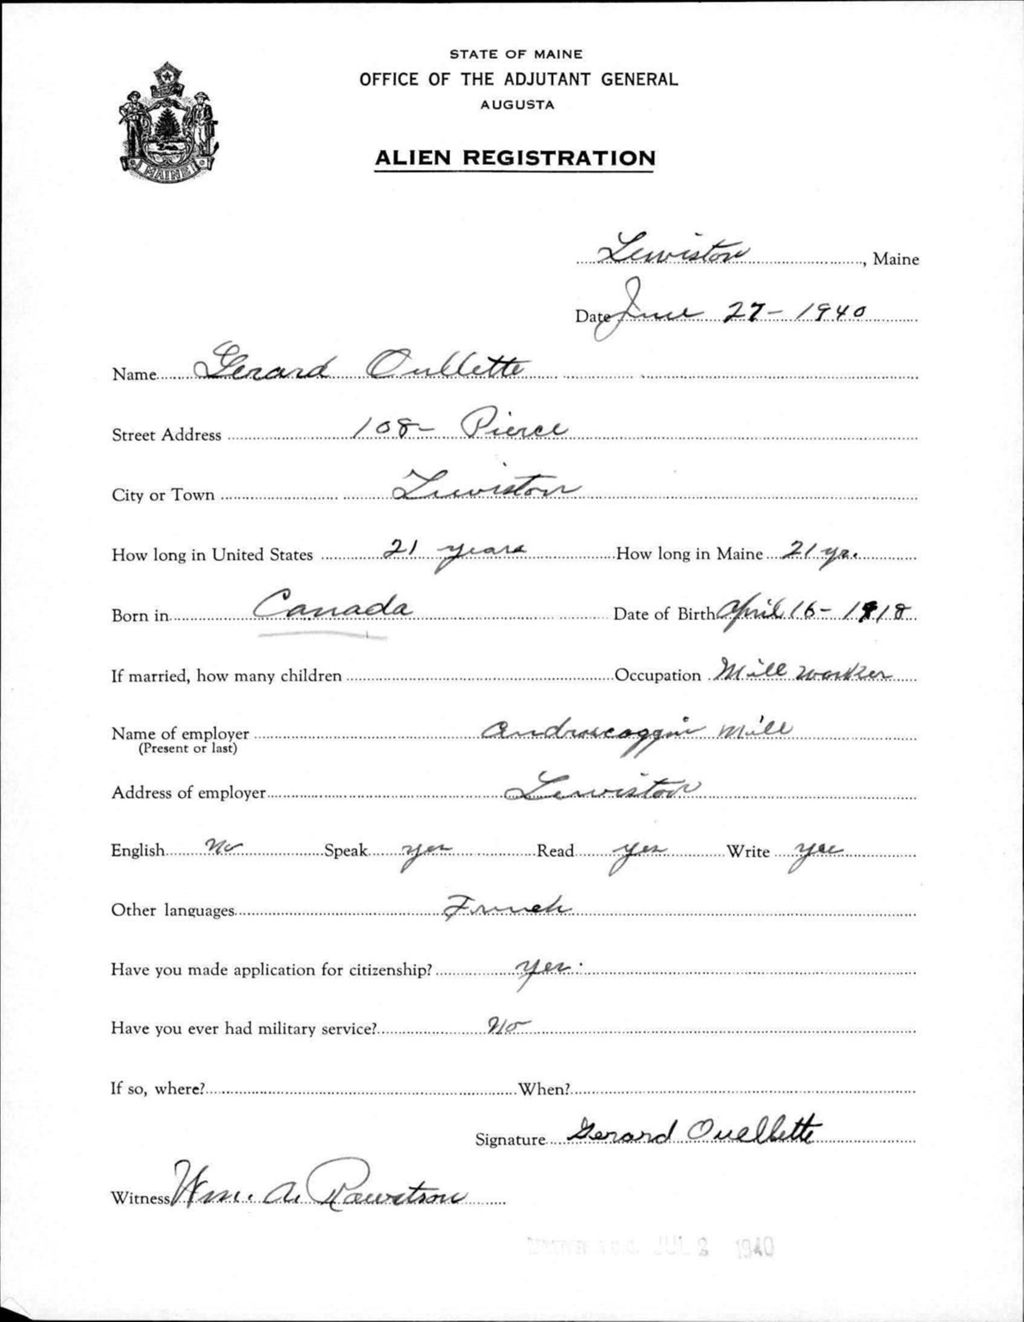 STATE OF MAINE
OFFICE OF THE ADJUTANT GENERAL
AUGUSTA
ALIEN REGISTRATION
MAINE
Lewiston, Maine
Date June 27- 1940
Name Gerard Oullette
Street Address 108- Pierce
City or Town Lewiston
How long in United States 21 years How long in Maine 21 yrs.
Born in Canada Date of Birth April 16- 1918
If married, how many children Occupation Mill worker
Name of employer Androscoggin Mill
(Present or last)
Address of employer Lewiston
English No Speak yes Read yes Write yes
Other languages French
Have you made application for citizenship? yes.
Have you ever had military service? No
If so, where? When?
Signature Gerard Ouellette
Witness Wm. A.
JUL 2 1940